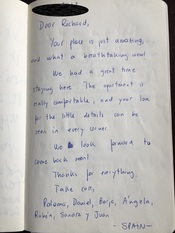 Dear Richard,
Your place is just amazing,
and what a breathtaking view!
We had a great time
staying here. The apartment is
really comfortable, and your love
for the little details can be
seen in every corner.
We look forward to
come back soon!
Thanks for everything
Take care,
Paloma, Daniel, Borja, Ángela,
Rubén, Sandra y Juan
- SPAIN -